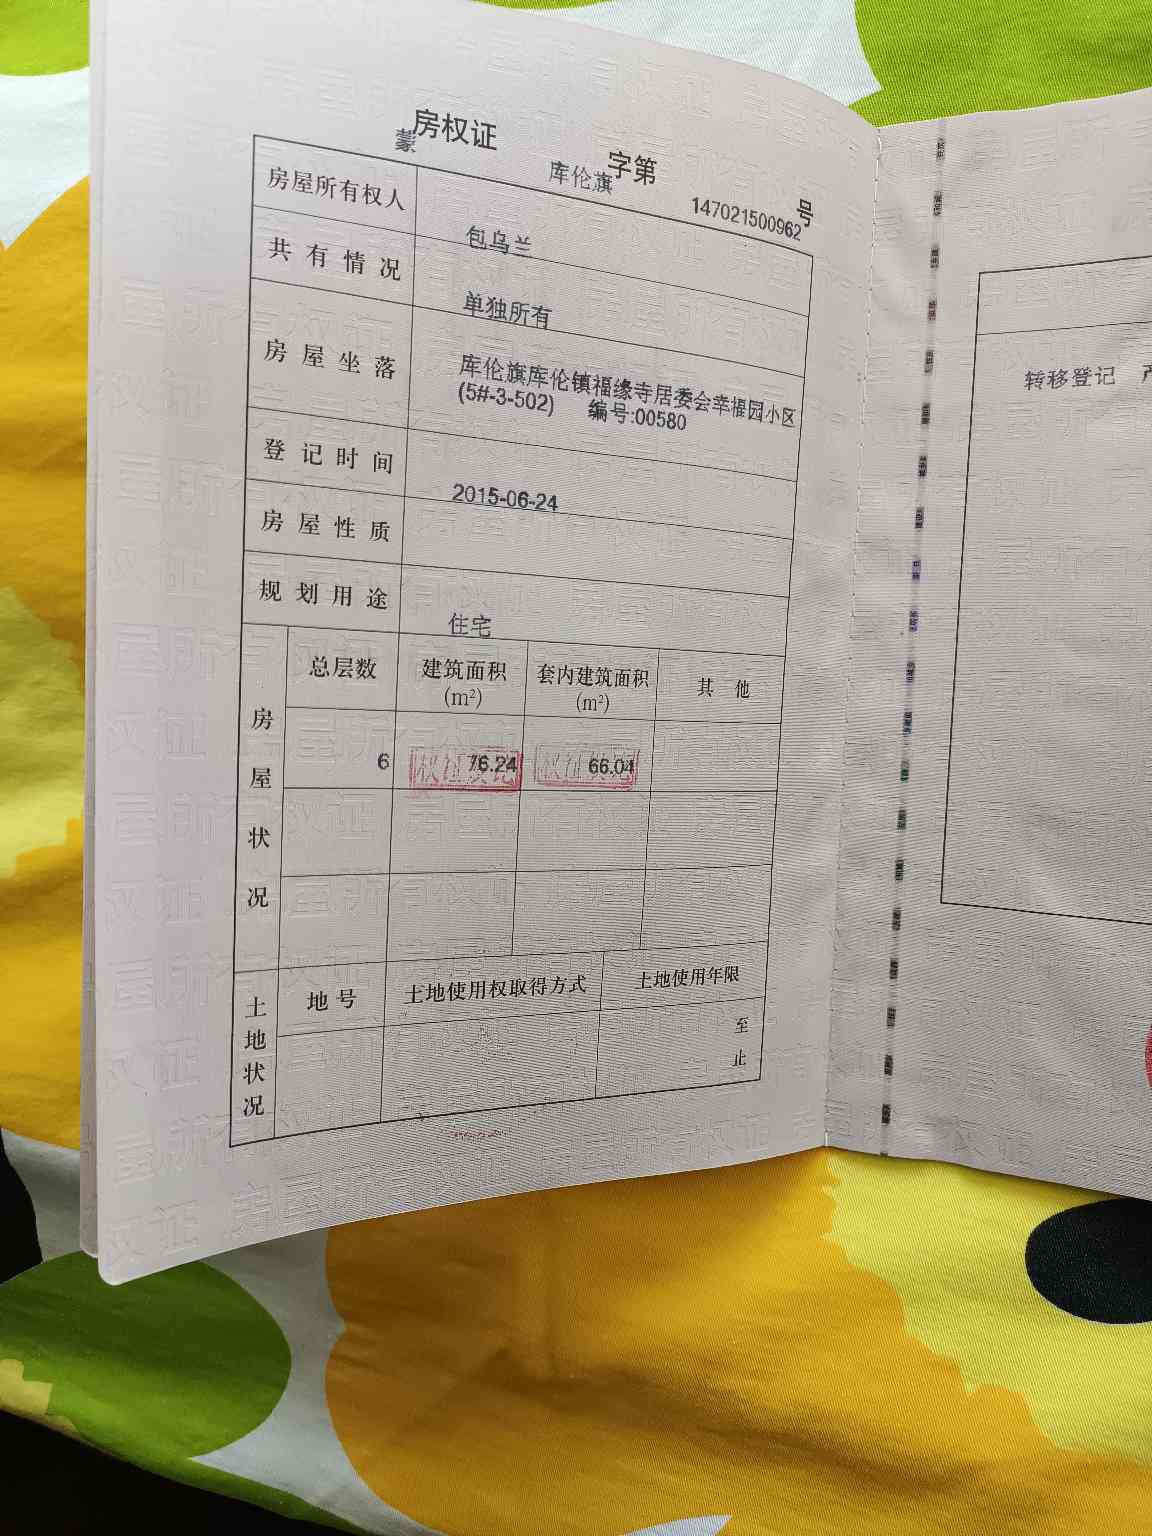 蒙 房权证 库伦旗 字第 147021500962 号
房屋所有权人 包乌兰
共有情况 单独所有
房屋坐落 库伦旗库伦镇福缘寺居委会幸福园小区
(5#-3-502) 编号:00580
登记时间 2015-06-24
房屋性质
规划用途 住宅
房屋状况
总层数 建筑面积(m²) 套内建筑面积(m²) 其他
6 76.24 66.04
土地状况
地号 土地使用权取得方式 土地使用年限
至
止
转移登记